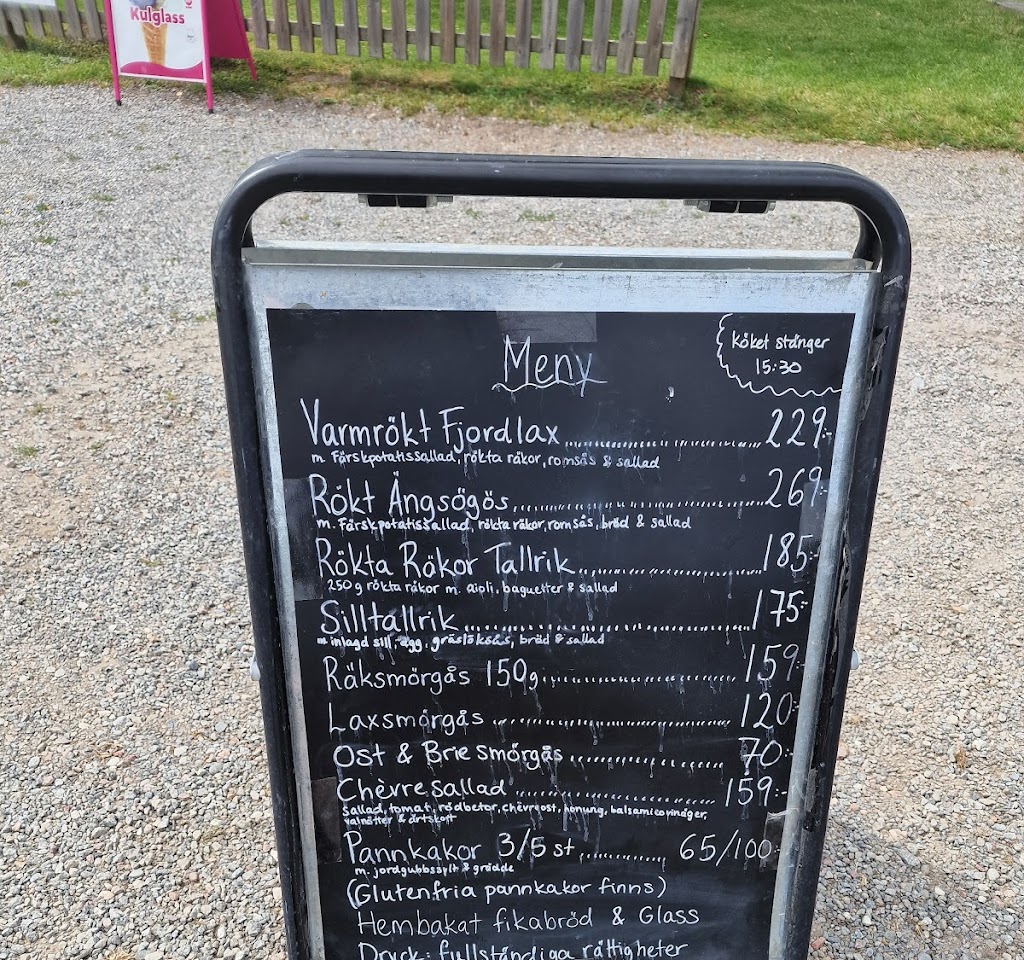 Kulglass
Meny
köket stänger
15:30
Varmrökt Fjordlax 229:-
m. Färskpotatissallad, rökta räkor, romsås & sallad
Rökt Ängsögös 269:-
m. Färskpotatissallad, rökta räkor, romsås, bröd & sallad
Rökta Räkor Tallrik 185:-
250 g rökta räkor m. aioli, baguetter & sallad
Silltallrik 175:-
m inlagd sill, ägg, gräslöksås, bröd & sallad
Räksmörgås 150g 159:-
Laxsmörgås 120:-
Ost & Brie smörgås 70:-
Chèvresallad 159:-
Sallad, tomat, rödbetor, chèvreost, honung, balsamicovinäger,
valnötter & ärtskott
Pannkakor 3/5 st 65/100:-
m. jordgubbssylt & grädde
(Glutenfria pannkakor finns)
Hembakat fikabröd & Glass
Dryck: fullständiga rättigheter